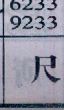 6233
9233
尺